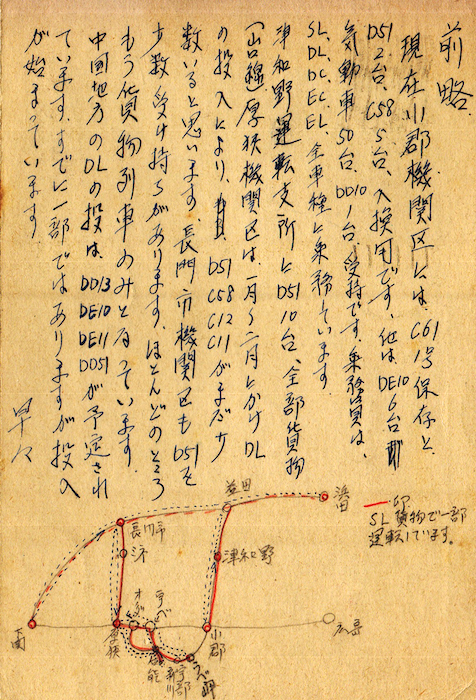 前略.
現在小郡機関区には、C61 1号保存と
D51 2台、C58 5台、入換用です、他は DE10 6台
気動車50台、DD10 1台、受持です。乗務員は、
SL、DL、DC、EC、EL、全車種に乗務しています。
津和野運転支所にD51 10台、全部貨物
(山口線)厚狭機関区は、一月〜二月にかけDL
の投入により、D51 C58 C12 C11がまだ少
数いると思います、長門市機関区もD51を
少数受け持ちがあります、ほとんどのところ
もう貨物列車のみとなっています。
中国地方のDLの投は、DD13 DE10 DE11 DD51が予定され
ています、すでに一部ではありますが投入
が始まっています.
早々
浜田
益田
長門市
津和野
小郡
広島
厚狭
宇部
新川
印
SL貨物で一部
運転しています。